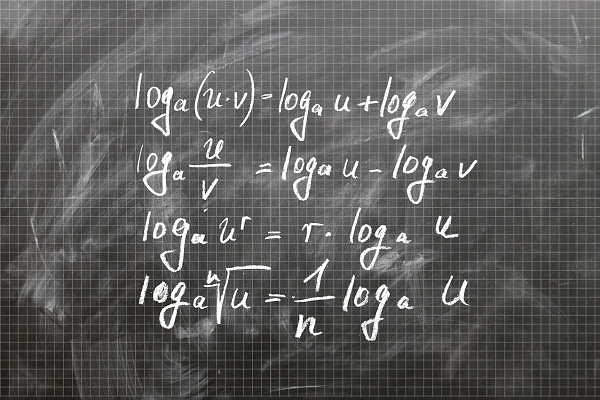 logₐ(u·v) = logₐ u + logₐ v
logₐ u/v = logₐ u - logₐ v
logₐ uʳ = r · logₐ u
logₐ ⁿ√u = 1/n logₐ u